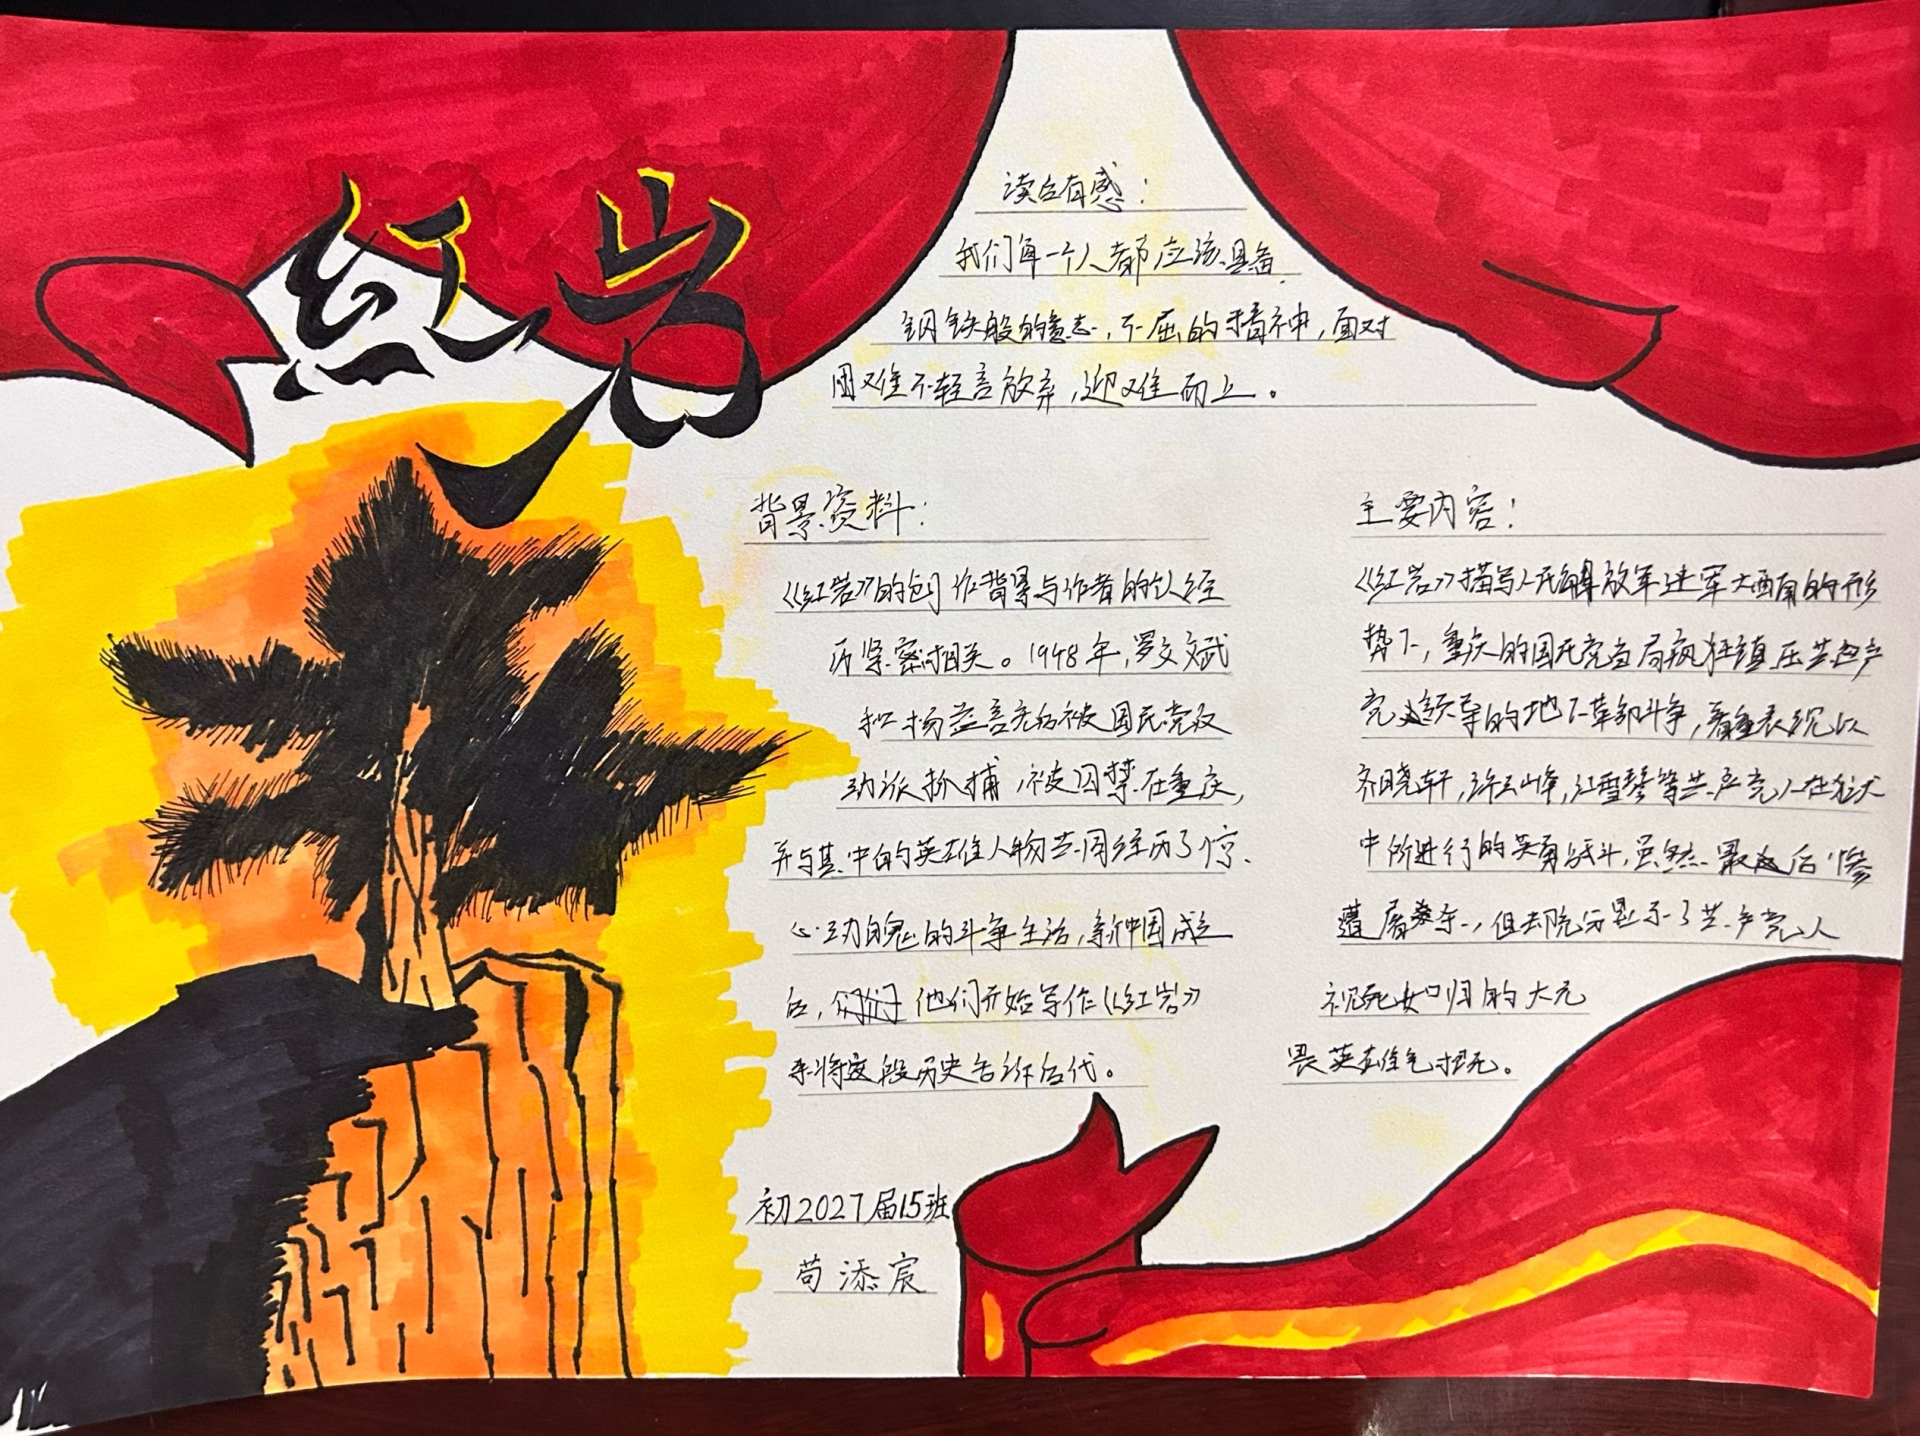 红岩
读后有感：
我们每一个人都应该具备
钢铁般的意志，不屈的精神，面对
困难不轻言放弃，迎难而上。
背景资料：
《红岩》的创作背景与作者的亲经
历紧密相关。1948年，罗文斌
和杨益言先后被国民党反
动派抓捕，被囚禁在重庆，
并与其中的英雄人物共同经历了惊
心动魄的斗争生活，新中国成立
后，他们开始写作《红岩》
来将这段历史告诉后代。
主要内容：
《红岩》描写人民解放军进军大西南的形
势下，重庆的国民党当局疯狂镇压共产
党领导的地下革命斗争，着重表现以
齐晓轩，许云峰，江雪琴等共产党人在狱
中所进行的英勇战斗，虽然最后惨
遭屠杀，但却充分显示了共产党人
视死如归的大无
畏英雄气概。
初2027届15班
苟添宸